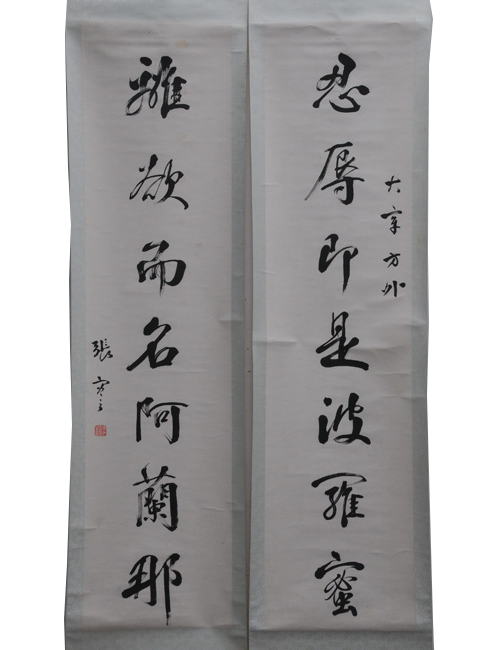 忍辱即是波羅蜜
大 方外
離欲而名阿蘭那
張謇